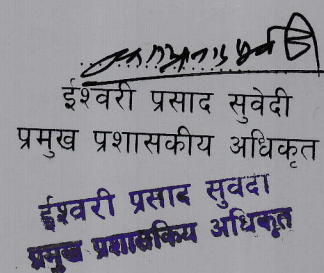 ईश्वरी प्रसाद सुवेदी
प्रमुख प्रशासकीय अधिकृत
ईश्वरी प्रसाद सुवदी
प्रमुख प्रशासकिय अधिकृत